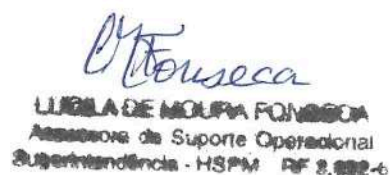 Fonseca
LUBILA DE MOURA FONSECA
Assessora de Suporte Operacional
Superintendência - HSPM RF